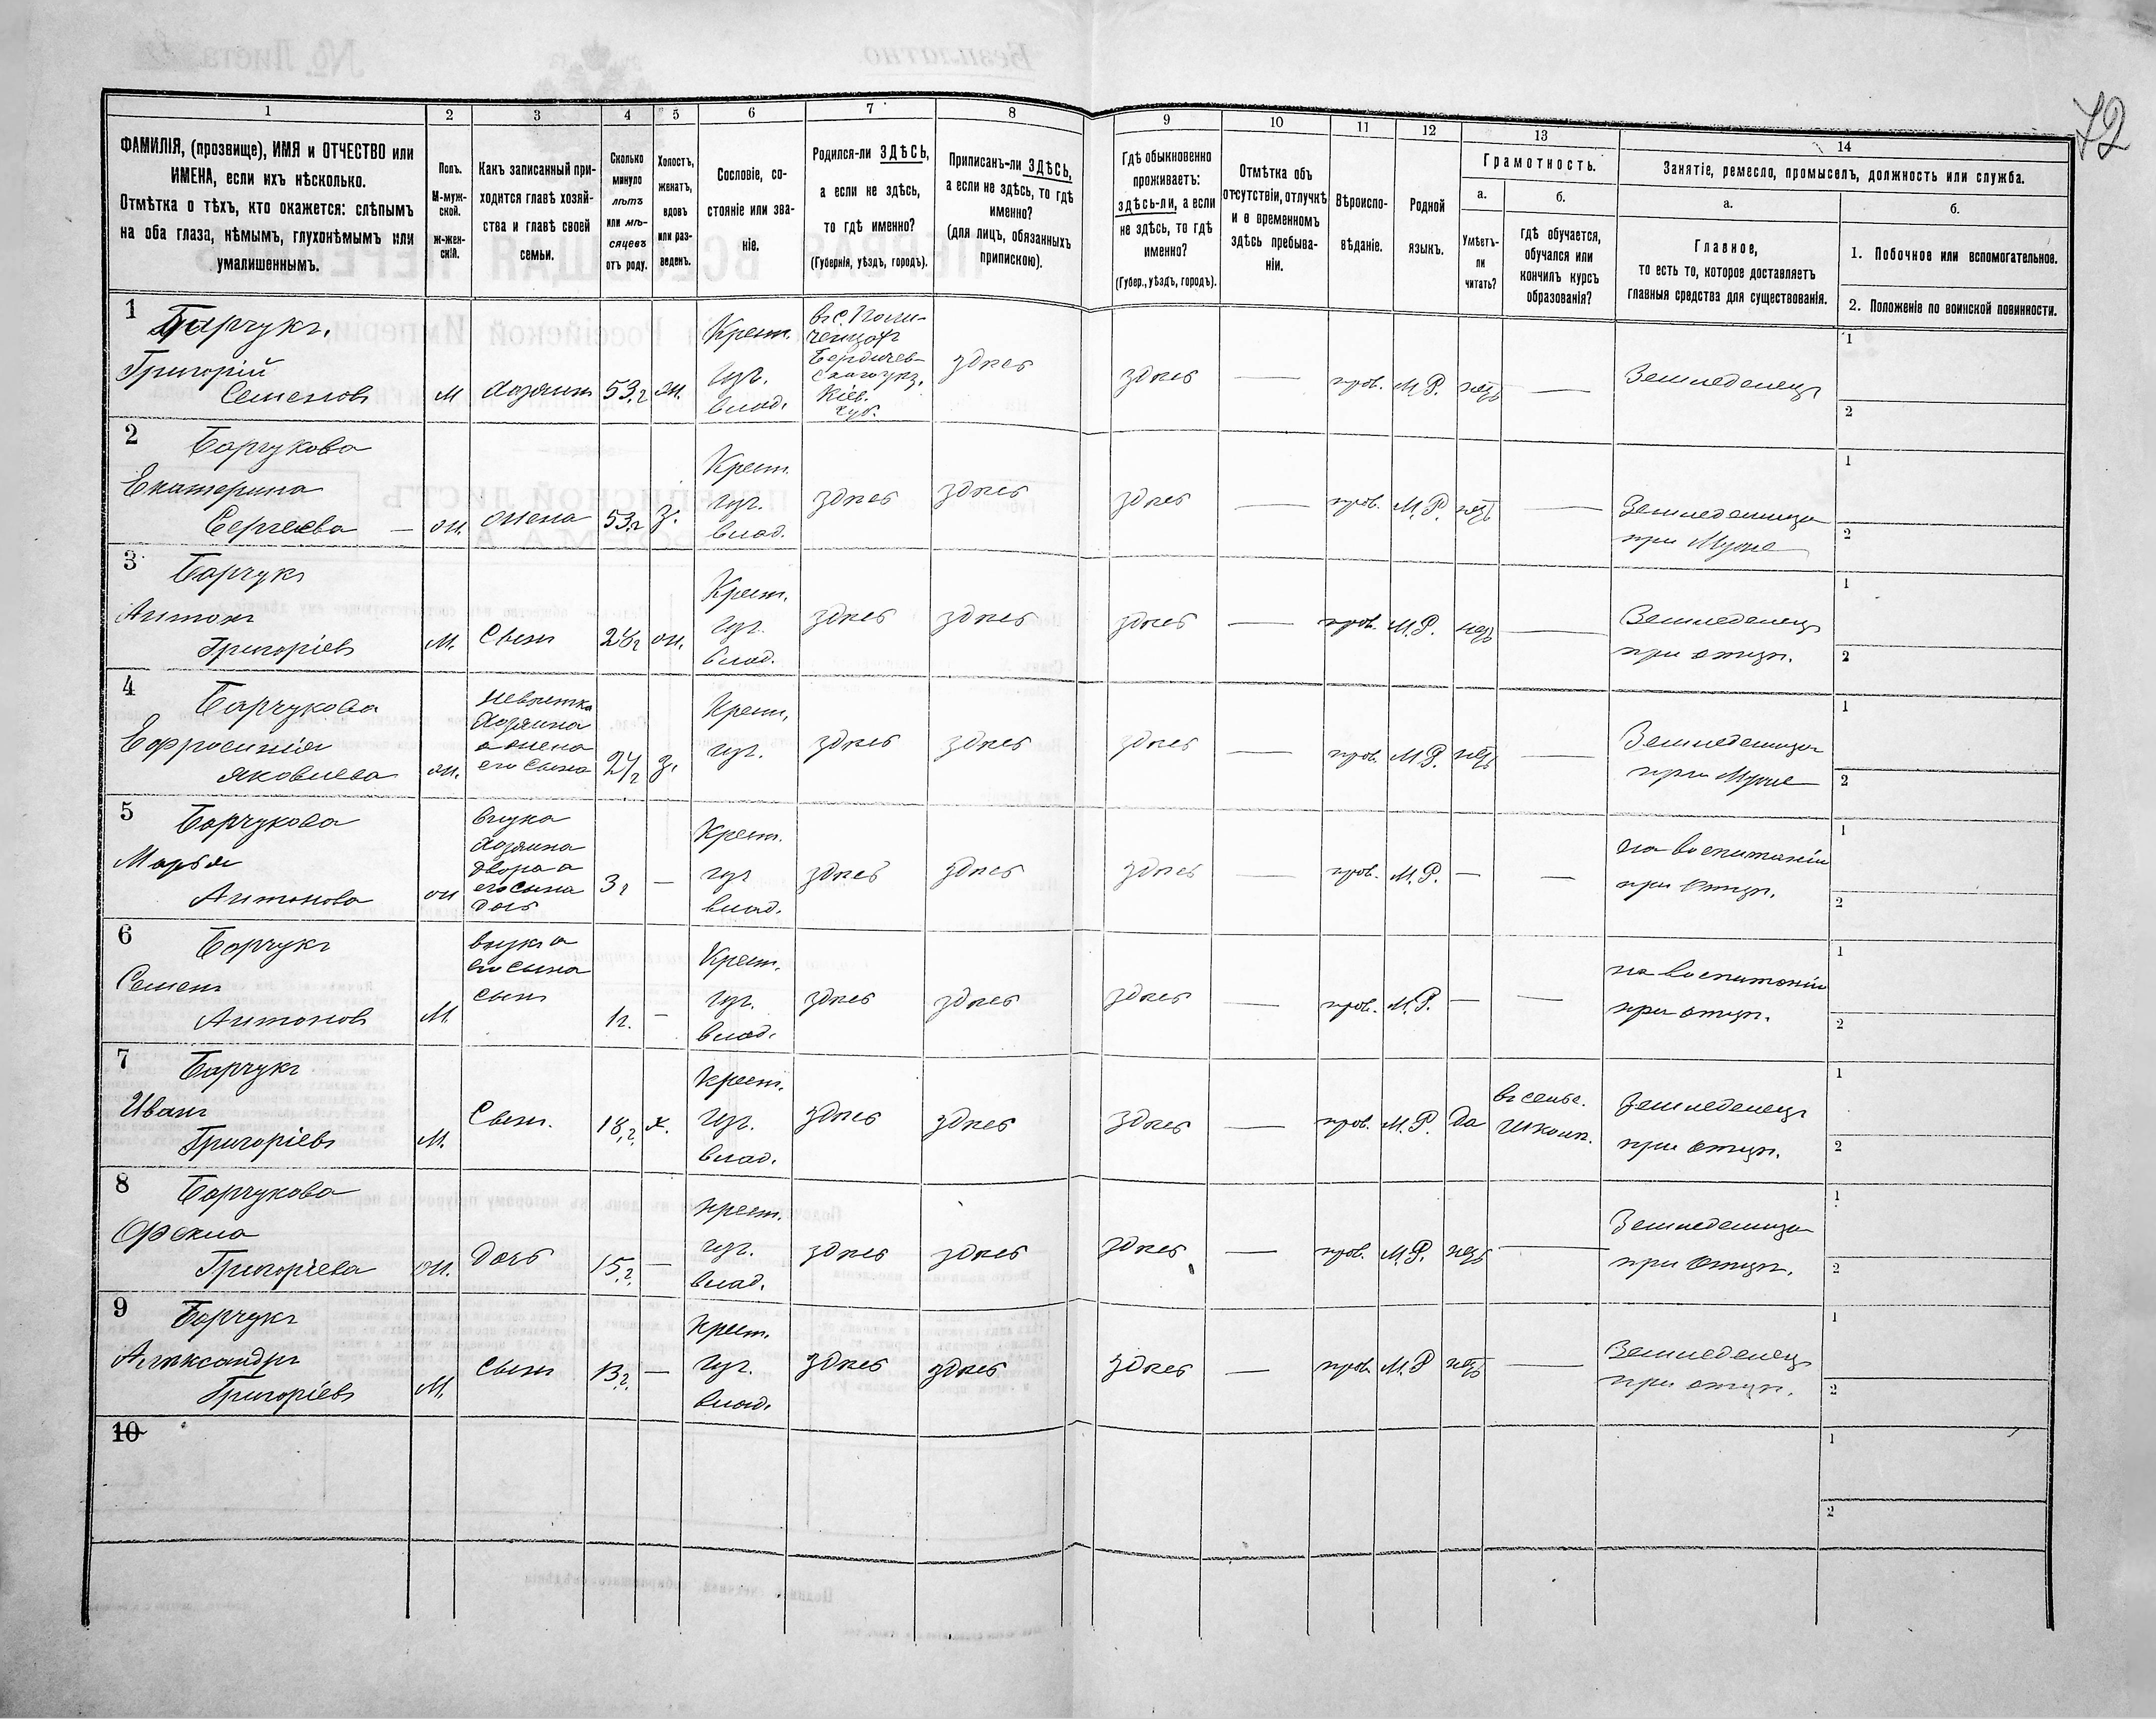 72
1 2 3 4 5 6 7 8 9 10 11 12 13 14
ФАМИЛІЯ, (прозвище), ИМЯ и ОТЧЕСТВО или
ИМЕНА, если ихъ нѣсколько.
Отмѣтка о тѣхъ, кто окажется: слѣпымъ
на оба глаза, нѣмымъ, глухонѣмымъ или
умалишеннымъ.
Полъ.
М-муж-
ской.
Ж-жен-
скій.
Какъ записанный при-
ходится главѣ хозяй-
ства и главѣ своей
семьи.
Сколько
минуло
лѣтъ
или мѣ-
сяцевъ
отъ роду.
Холостъ,
женатъ,
вдовъ
или раз-
веденъ.
Сословіе, со-
стояніе или зва-
ніе.
Родился-ли ЗДѢСЬ,
а если не здѣсь,
то гдѣ именно?
(Губернія, уѣздъ, городъ).
Приписанъ-ли ЗДѢСЬ,
а если не здѣсь, то гдѣ
именно?
(для лицъ, обязанныхъ
припискою).
Гдѣ обыкновенно
проживаетъ:
здѣсь-ли, а если
не здѣсь, то гдѣ
именно?
(Губер., уѣздъ, городъ).
Отмѣтка объ
отсутствіи, отлучкѣ
и о временномъ
здѣсь пребыва-
ніи.
Вѣроиспо-
вѣданіе.
Родной
языкъ.
Грамотность.
а.
Умѣетъ-
ли
читать?
б.
гдѣ обучается,
обучался или
кончилъ курсъ
образованія?
Занятіе, ремесло, промыселъ, должность или служба.
а.
Главное,
то есть то, которое доставляетъ
главныя средства для существованія.
б.
1. Побочное или вспомогательное.
2. Положеніе по воинской повинности.
1
Барчукъ.
Григорій
Семеновъ
М
Хозяинъ
53.г
ж.
Крест.
изъ.
влад.
въ с.
Бердичев-
Кіев.
губ.
здѣсь
здѣсь
—
прав.
М.Р.
нѣтъ
—
Земледѣлецъ
1
2
2
Барчукова
Екатерина
Сергеева —
ж.
жена
53.г
з.
Крест.
изъ.
влад.
здѣсь
здѣсь
здѣсь
—
прав.
М.Р.
нѣтъ
—
Земледѣлица
при Мужѣ
1
2
3
Барчукъ
Антонъ
Григоріевъ
М.
Сынъ
ж.
Крест.
изъ.
влад.
здѣсь
здѣсь
здѣсь
—
прав.
М.Р.
нѣтъ
—
Земледѣлецъ
при отцѣ.
1
2
4
Барчукова
Ефросинія
Яковлева
ж.
Невѣстка
Хозяина
а жена
его сына
з.
Крест.
изъ.
здѣсь
здѣсь
здѣсь
—
прав.
М.Р.
нѣтъ
—
Земледѣлица
при Мужѣ
1
2
5
Барчукова
Марья
Антонова
ж
внука
Хозяина
двора а
его сына
дочь
3 г
—
Крест.
изъ
влад.
здѣсь
здѣсь
здѣсь
—
прав.
М.Р.
—
—
на воспитаніи
при отцѣ.
1
2
6
Барчукъ
Семенъ
Антоновъ
М.
внукъ а
его сына
сынъ
1г.
—
Крест.
изъ.
влад.
здѣсь
здѣсь
здѣсь
—
прав.
М.Р.
—
—
на воспитаніи
при отцѣ.
1
2
7
Барчукъ
Иванъ
Григоріевъ
М.
Сынъ.
18.г.
х.
Крест.
изъ.
влад.
здѣсь
здѣсь
здѣсь
—
прав.
М.Р.
Да
въ сельс.
школѣ.
Земледѣлецъ
при отцѣ.
1
2
8
Барчукова
Григоріева
ж.
Дочь
15.г.
—
Крест.
изъ.
влад.
здѣсь
здѣсь
здѣсь
—
прав.
М.Р.
нѣтъ
—
Земледѣлица
при отцѣ.
1
2
9
Барчукъ
Алѣксандръ
Григоріевъ
М.
Сынъ
13г.
—
Крест.
изъ.
влад.
здѣсь
здѣсь
здѣсь
—
прав.
М.Р
нѣтъ
—
Земледѣлецъ
при отцѣ.
1
2
10
1
2